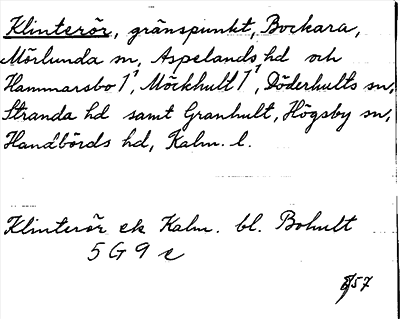 Klinterör, gränspunkt, Bockara,
Mörlunda sn, Aspelands hd och
Hammarsbo 1¹, Möckhult 1¹, Döderhults sn,
Stranda hd samt Granhult, Högsby sn,
Handbörds hd, Kalm. l.
Klinterör ek Kalm. bl. Bohult
5 G 9 c
57